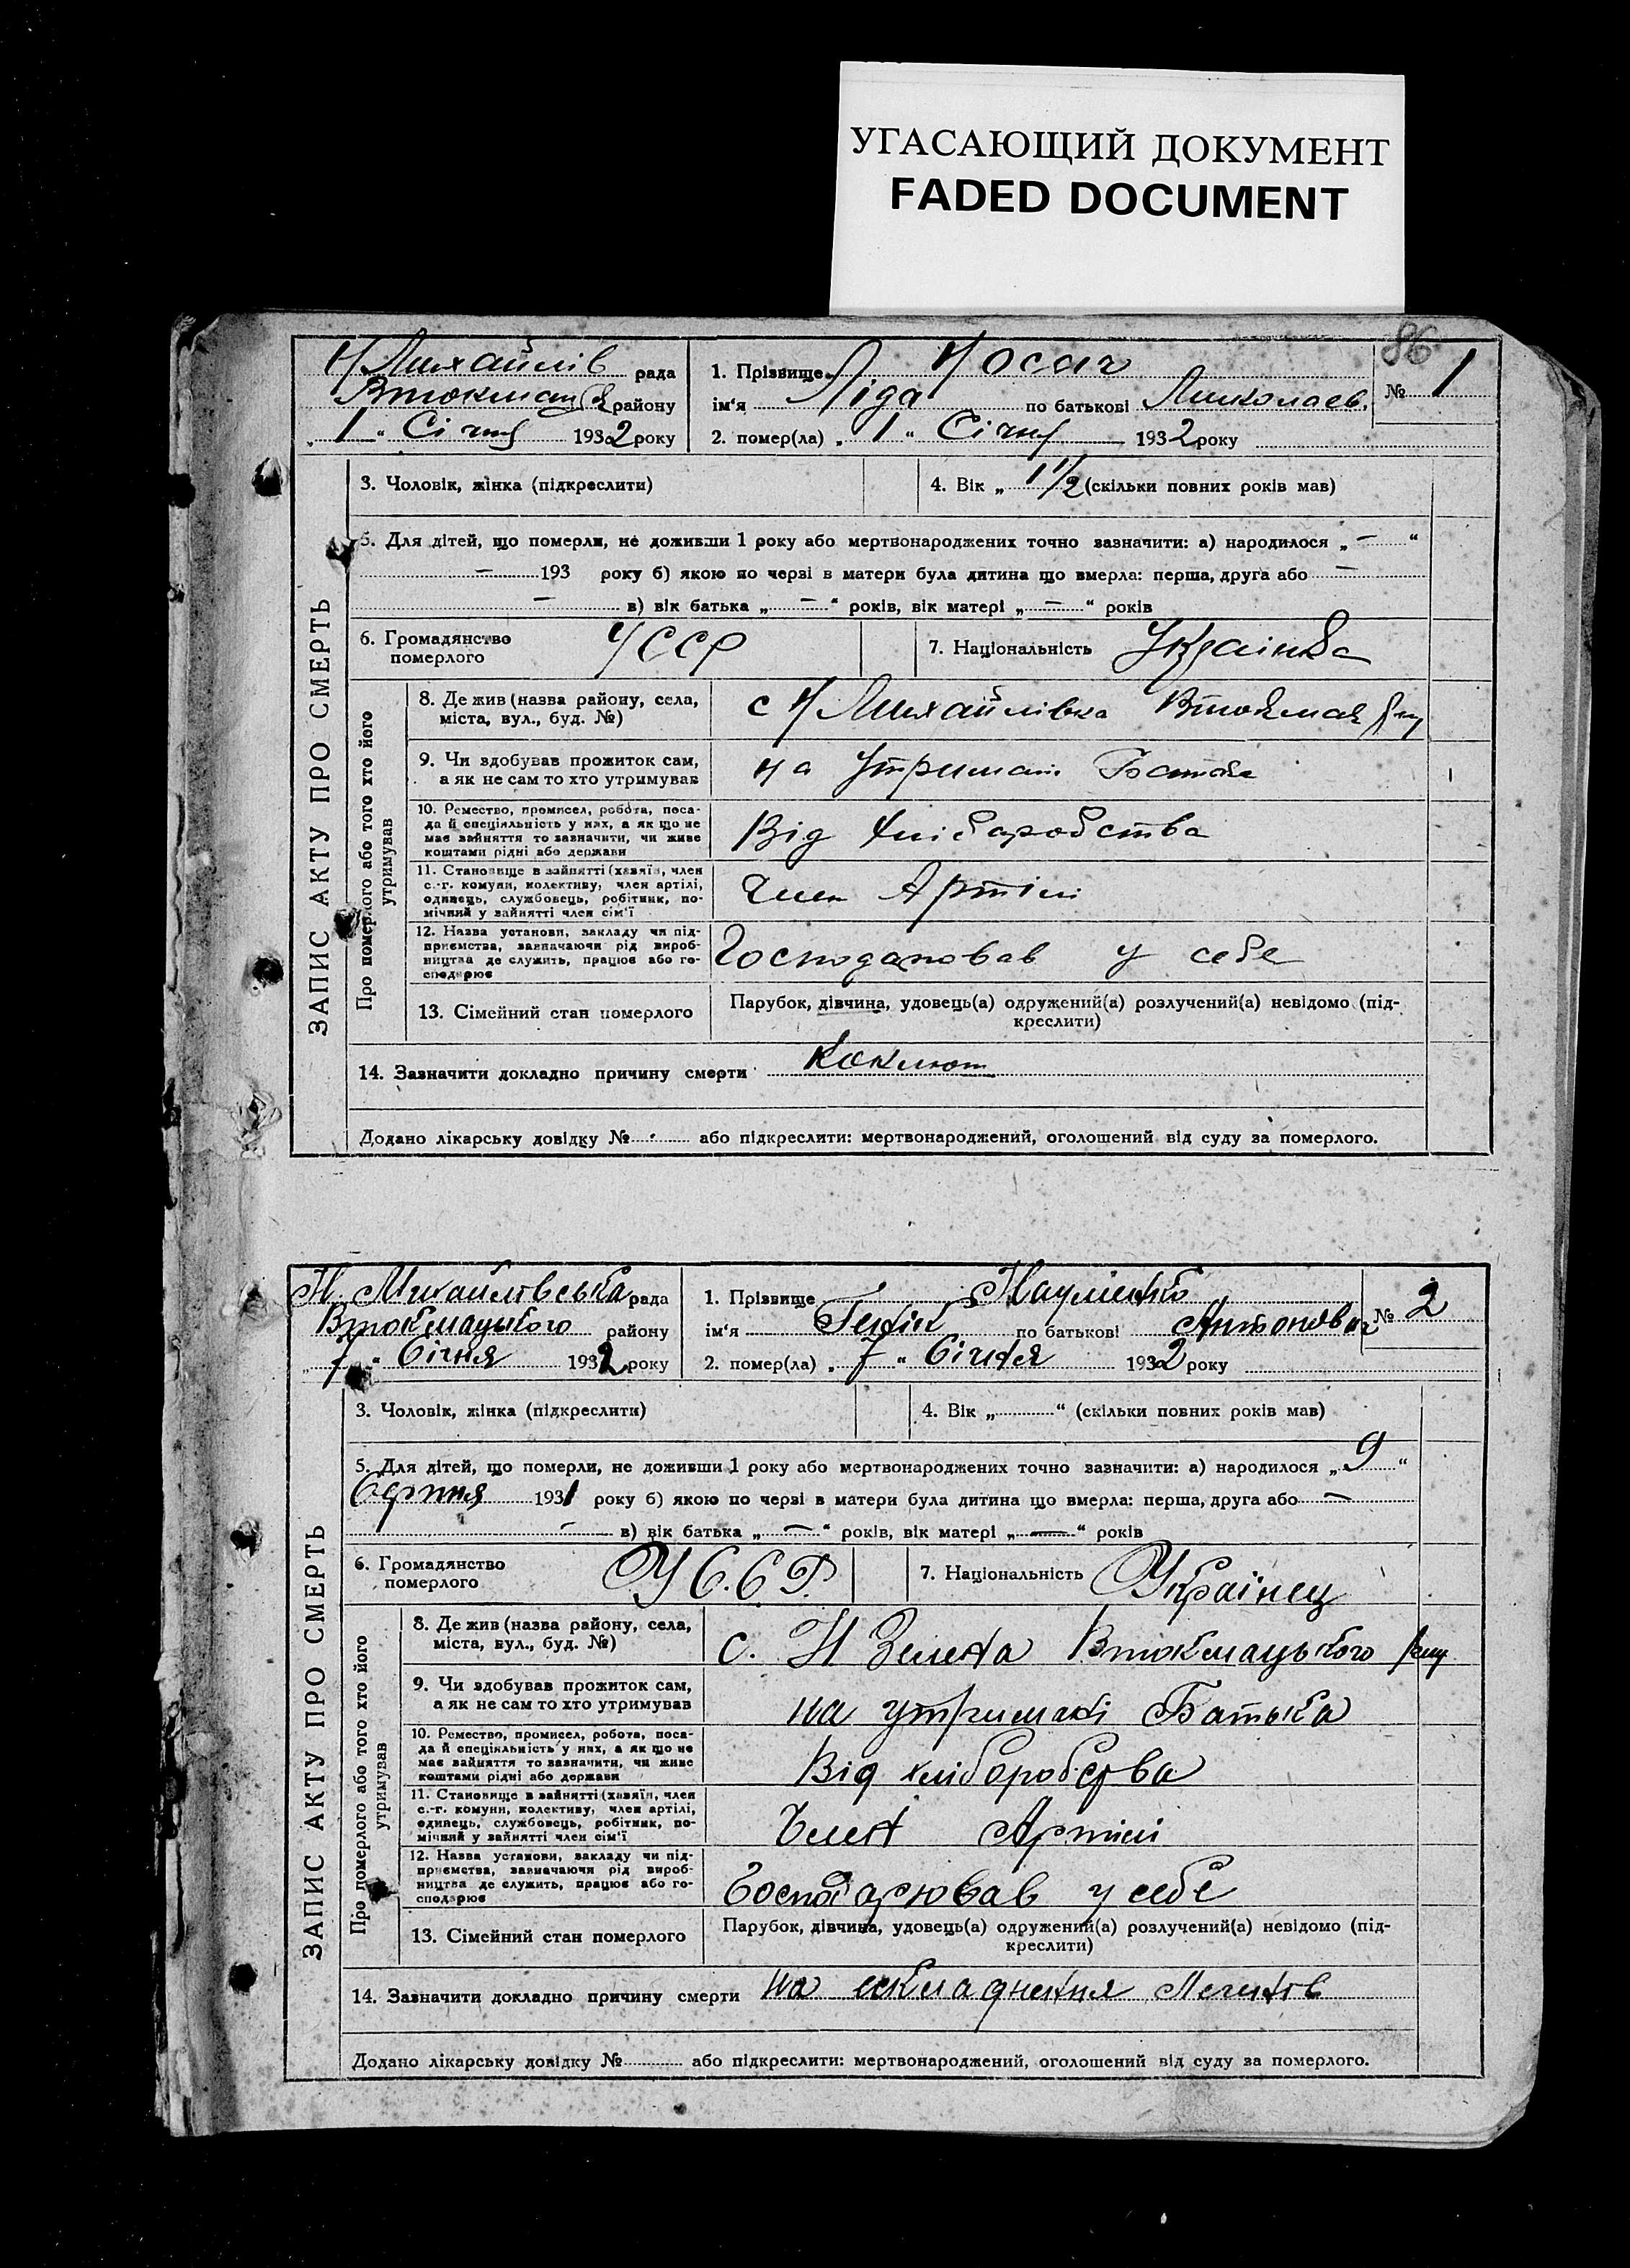 УГАСАЮЩИЙ ДОКУМЕНТ
FADED DOCUMENT
86
Н/Михайлів рада
Втокмац району
„ 1 “ Січня 1932 року
1. Прізвище Носач
ім'я Ліда по батькові Миколаєв.
№ 1
2. помер(ла) „ 1 “ Січня 1932 року
3. Чоловік, жінка (підкреслити)
4. Вік „ 1 1/2 (скільки повних років мав)
5. Для дітей, що померли, не доживши 1 року або мертвонароджених точно зазначити: а) народилося „ — “
— 193 року б) якою по черзі в матери була дитина що вмерла: перша, друга або —
— в) вік батька „ — “ років, вік матері „ — “ років
6. Громадянство
померлого
УССР
7. Національність Українка
ЗАПИС АКТУ ПРО СМЕРТЬ
Про померлого або того хто його
утримував
8. Де жив (назва району, села,
міста, вул., буд. №)
с Н/Михайлівка
9. Чи здобував прожиток сам,
а як не сам то хто утримував
на Утримані Батька
10. Ремество, промисел, робота, поса-
да й спеціяльність у них, а як що не
має зайняття то зазначити, чи живе
коштами рідні або держави
Від хліборобства
11. Становище в зайнятті (хазяїн, член
с.-г. комуни, колективу, член артілі,
одинець, службовець, робітник, по-
мічний у зайнятті член сім'ї
Член Артілі
12. Назва установи, закладу чи під-
приємства, зазначаючи рід вироб-
ництва де служить, працює або го-
сподарює
Господаровав у себе
13. Сімейний стан померлого
Парубок, дівчина, удовець(а) одружений(а) розлучений(а) невідомо (під-
креслити)
14. Зазначити докладно причину смерти Коклюш
Додано лікарську довідку № або підкреслити: мертвонароджений, оголошений від суду за померлого.
Н. Михайлівська рада
Втокмацького району
„ 7 “ Січня 1932 року
1. Прізвище Науменко
ім'я по батькові Антонович
№ 2
2. помер(ла) „ 7 “ Січня 1932 року
3. Чоловік, жінка (підкреслити)
4. Вік „ “ (скільки повних років мав)
5. Для дітей, що померли, не доживши 1 року або мертвонароджених точно зазначити: а) народилося „ 9 “
Серпня 1931 року б) якою по черзі в матери була дитина що вмерла: перша, друга або —
— в) вік батька „ — “ років, вік матері „ — “ років
6. Громадянство
померлого
У С.С.Р.
7. Національність Українец
ЗАПИС АКТУ ПРО СМЕРТЬ
Про померлого або того хто його
утримував
8. Де жив (назва району, села,
міста, вул., буд. №)
с. Н Зелена Втокмацького р-ну
9. Чи здобував прожиток сам,
а як не сам то хто утримував
на утримані Батька
10. Ремество, промисел, робота, поса-
да й спеціяльність у них, а як що не
має зайняття то зазначити, чи живе
коштами рідні або держави
Від хліборобства
11. Становище в зайнятті (хазяїн, член
с.-г. комуни, колективу, член артілі,
одинець, службовець, робітник, по-
мічний у зайнятті член сім'ї
Член Артілі
12. Назва установи, закладу чи під-
приємства, зазначаючи рід вироб-
ництва де служить, працює або го-
сподарює
Господарював у себе
13. Сімейний стан померлого
Парубок, дівчина, удовець(а) одружений(а) розлучений(а) невідомо (під-
креслити)
14. Зазначити докладно причину смерти Легенів
Додано лікарську довідку № або підкреслити: мертвонароджений, оголошений від суду за померлого.